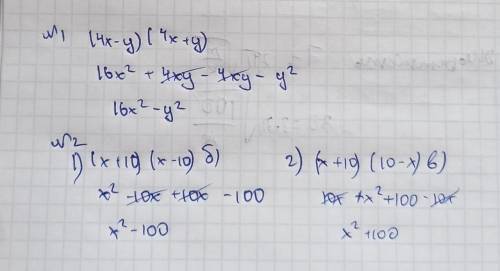 №1 (4x-y)(4x+y)
16x² + 4xy - 4xy - y²
16x² - y²
№2
1) (x+10)(x-10) б)
x² - 10x + 10x - 100
x² - 100
2) (x+10)(10-x) в)
10x + x² + 100 - 10x
x² + 100